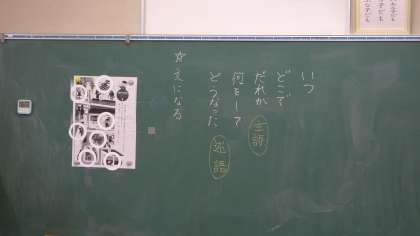 いつ
どこで
だれが
主語
何をして
どうなった
述語
変えになる